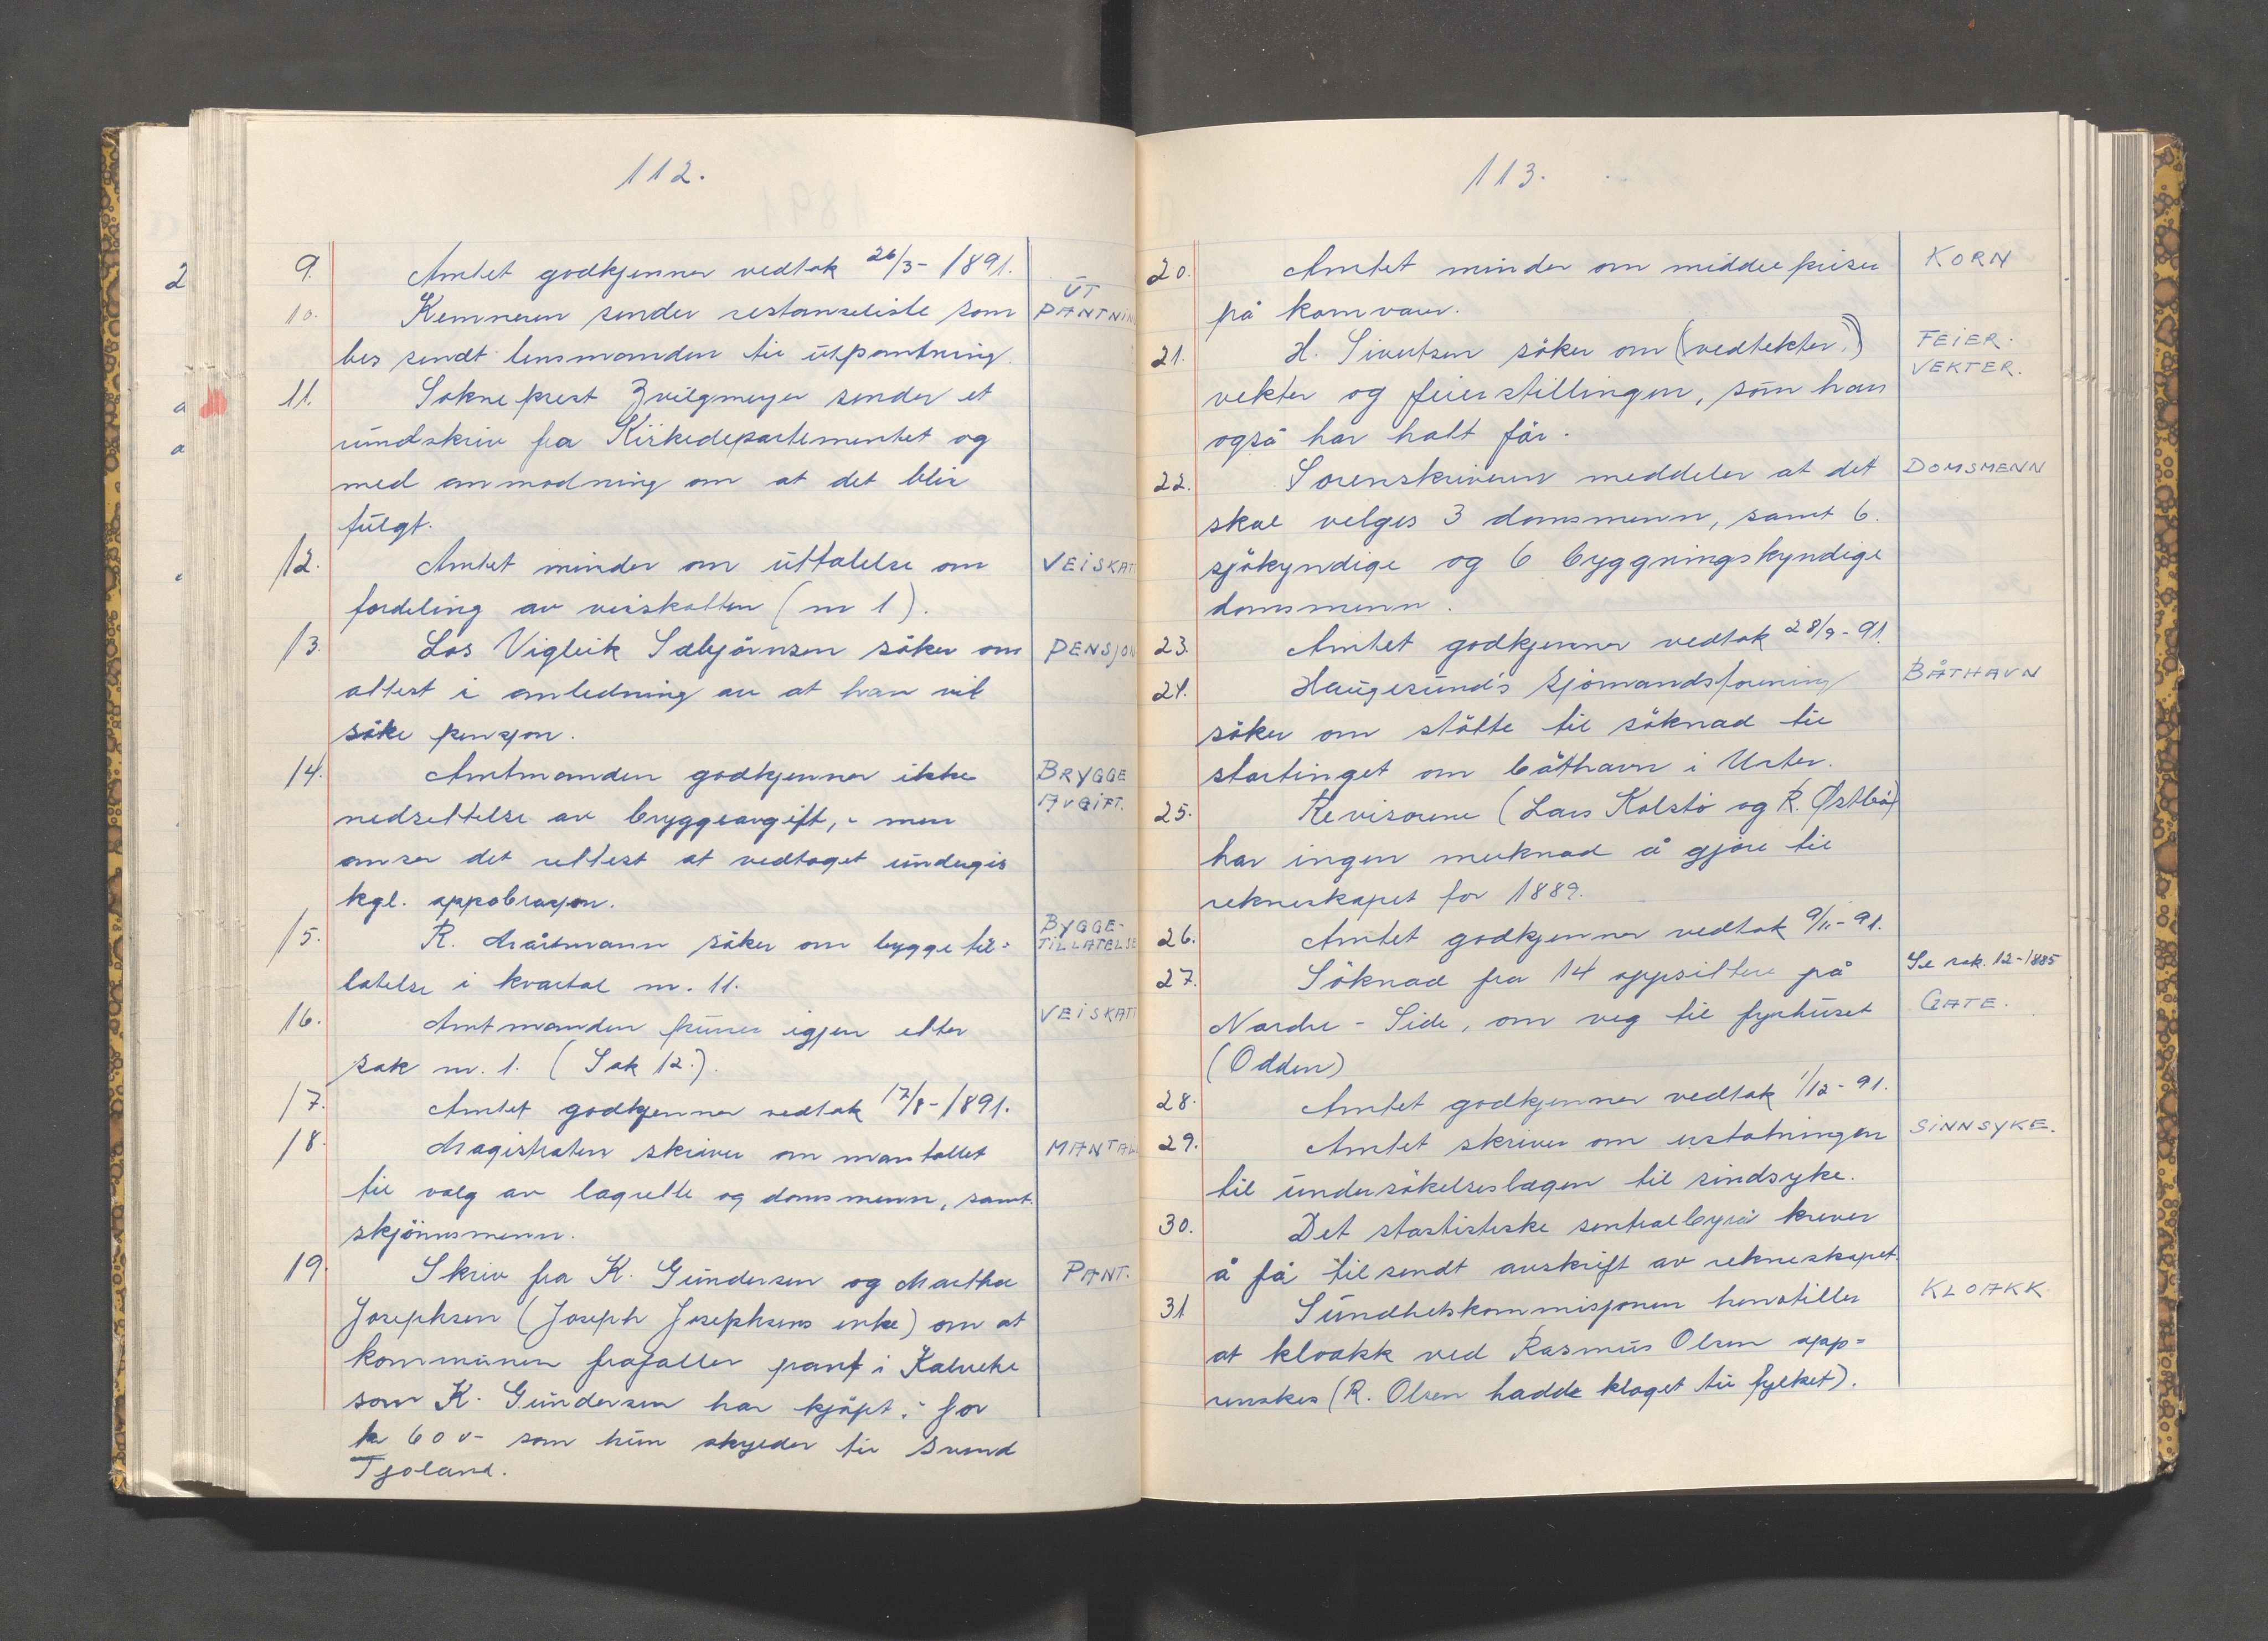 112.
9. Amtet godkjenner vedtak 26/3-1891.
10. Kemneren sender restanseliste som
bes sendt lensmanden til utpantning.
UT
PANTNIN
11. Sokneprest Zvilgmeyer sender et
rundskriv fra Kirkedepartementet og
med anmodning om at det blir
fulgt.
12. Amtet minder om uttalelse om
fordeling av veiskatten (nr 1).
VEISKATT
13. Los Vigleik Sæbjörnsen söker om
attest i anledning av at han vil
söke pensjon.
PENSJON
14. Amtmanden godkjenner ikke
nedsettelse av bryggeavgift, - men
anser det rettest at vedtaget undergis
kgl. appobrasjon.
BRYGGE
AVGIFT.
15. R. Mårtmann söker om bygge til=
latelse i kvartal nr. 11.
BYGGE-
TILLATELSE
16. Amtmanden purrer igjen etter
sak nr. 1. (Sak 12.).
VEISKATT
17. Amtet godkjenner vedtak 17/8-1891.
18. Magistraten skriver om mantallet
til valg av lagrette og domsmenn, samt
skjönnsmenn.
MANTALL
19. Skriv fra K. Gundersen og Martha
Josephsen (Joseph Josephsens enke) om at
kommunen frafaller pant i Kalveke
som K. Gundersen har kjöpt, - for
kr 600- som hun skylder til Svend
Tjoland.
PANT.
113.
20. Amtet minder om middelpriser
på kornvarer.
KORN
21. H. Sivertsen söker om (vedtekter,)
vekter og feierstillingen, som han
også har hatt för.
FEIER.
VEKTER.
22. Sorenskriveren meddeler at det
skal velges 3 domsmenn, samt 6.
sjökyndige og 6 byggningskyndige
domsmenn.
DOMSMENN
23. Amtet godkjenner vedtak 28/9-91.
24. Haugesund's Sjömandsforening
söker om stötte til söknad til
stortinget om båthavn i Urter.
BÅTHAVN
25. Revisorene (Lars Kolstö og R. Østbö)
har ingen merknad å gjöre til
rekneskapet for 1889.
26. Amtet godkjenner vedtak 9/11-91.
27. Söknad fra 14 oppsittere på
Nordre-Side, om veg til fyrhuset
(Odden)
Se sak. 12-1885
GATE.
28. Amtet godkjenner vedtak 1/12-91.
29. Amtet skriver om erstatningen
til undersökelseslægen til sindsyke.
SINNSYKE.
30. Det stastistiske sentralbyrå krever
å få tilsendt avskrift av rekneskapet.
31 Sundhetskommisjonen henstiller
at kloakk ved Rasmus Olsen opp=
renskes (R. Olsen hadde klaget til fylket).
KLOAKK